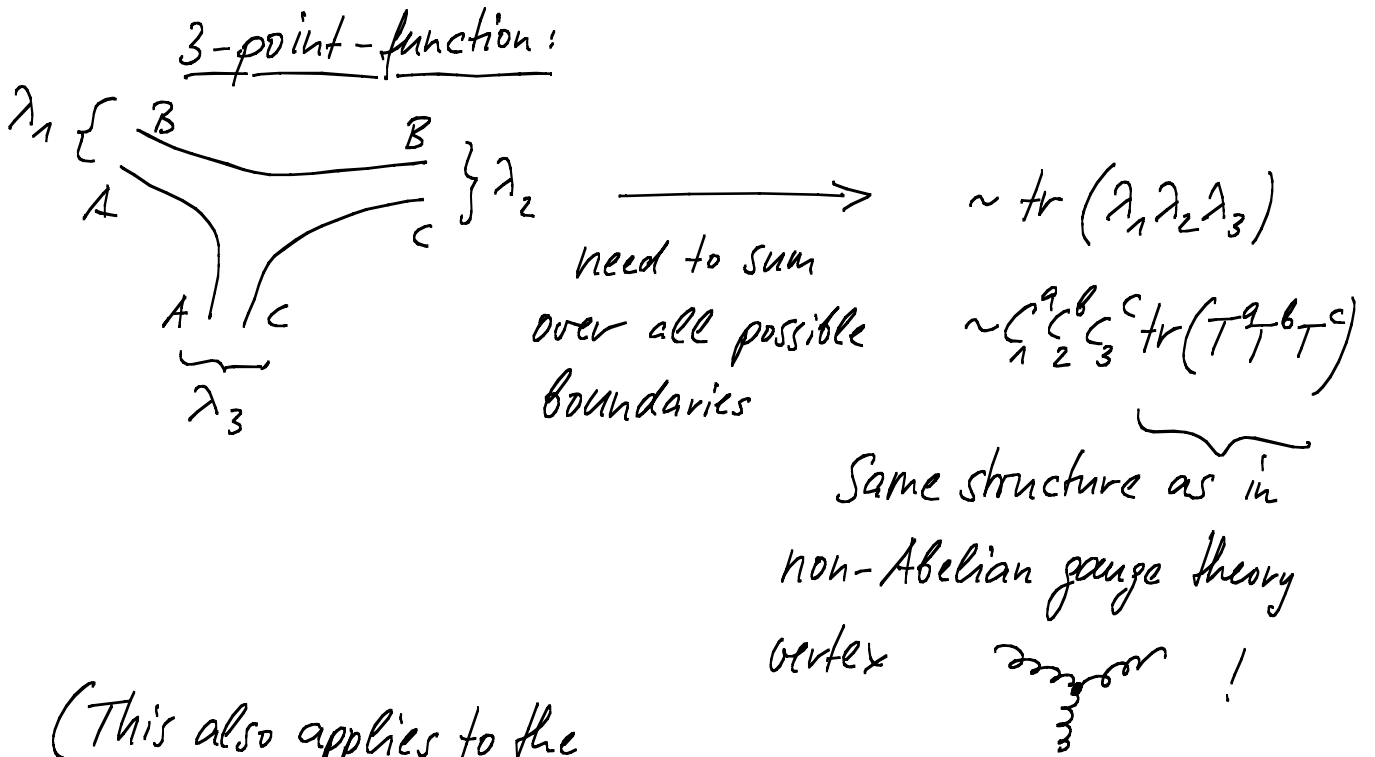 3-point-function:
λ₁ { B B } λ₂
A C
A C
λ₃
need to sum
over all possible
boundaries
~ tr (λ₁λ₂λ₃)
~ C₁ᵃ C₂ᵇ C₃ᶜ tr(TᵃTᵇTᶜ)
Same structure as in
non-Abelian gauge theory
vertex !
(This also applies to the